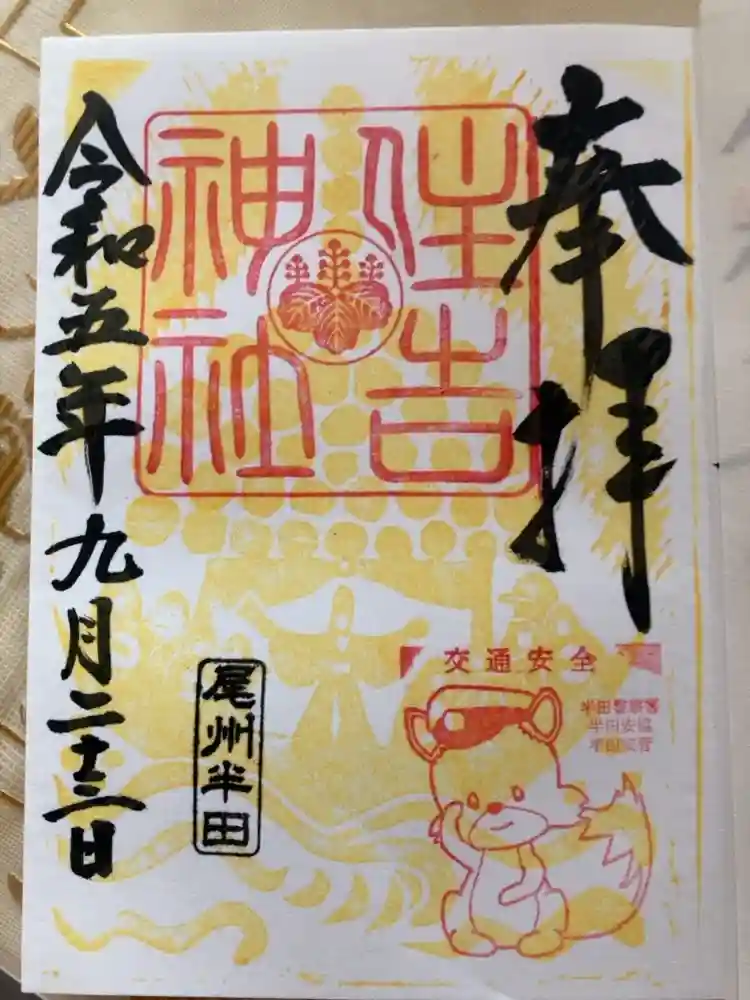 奉拝
住吉
神社
令和五年九月二十三日
尾州半田
交通安全
半田警察署
半田安協